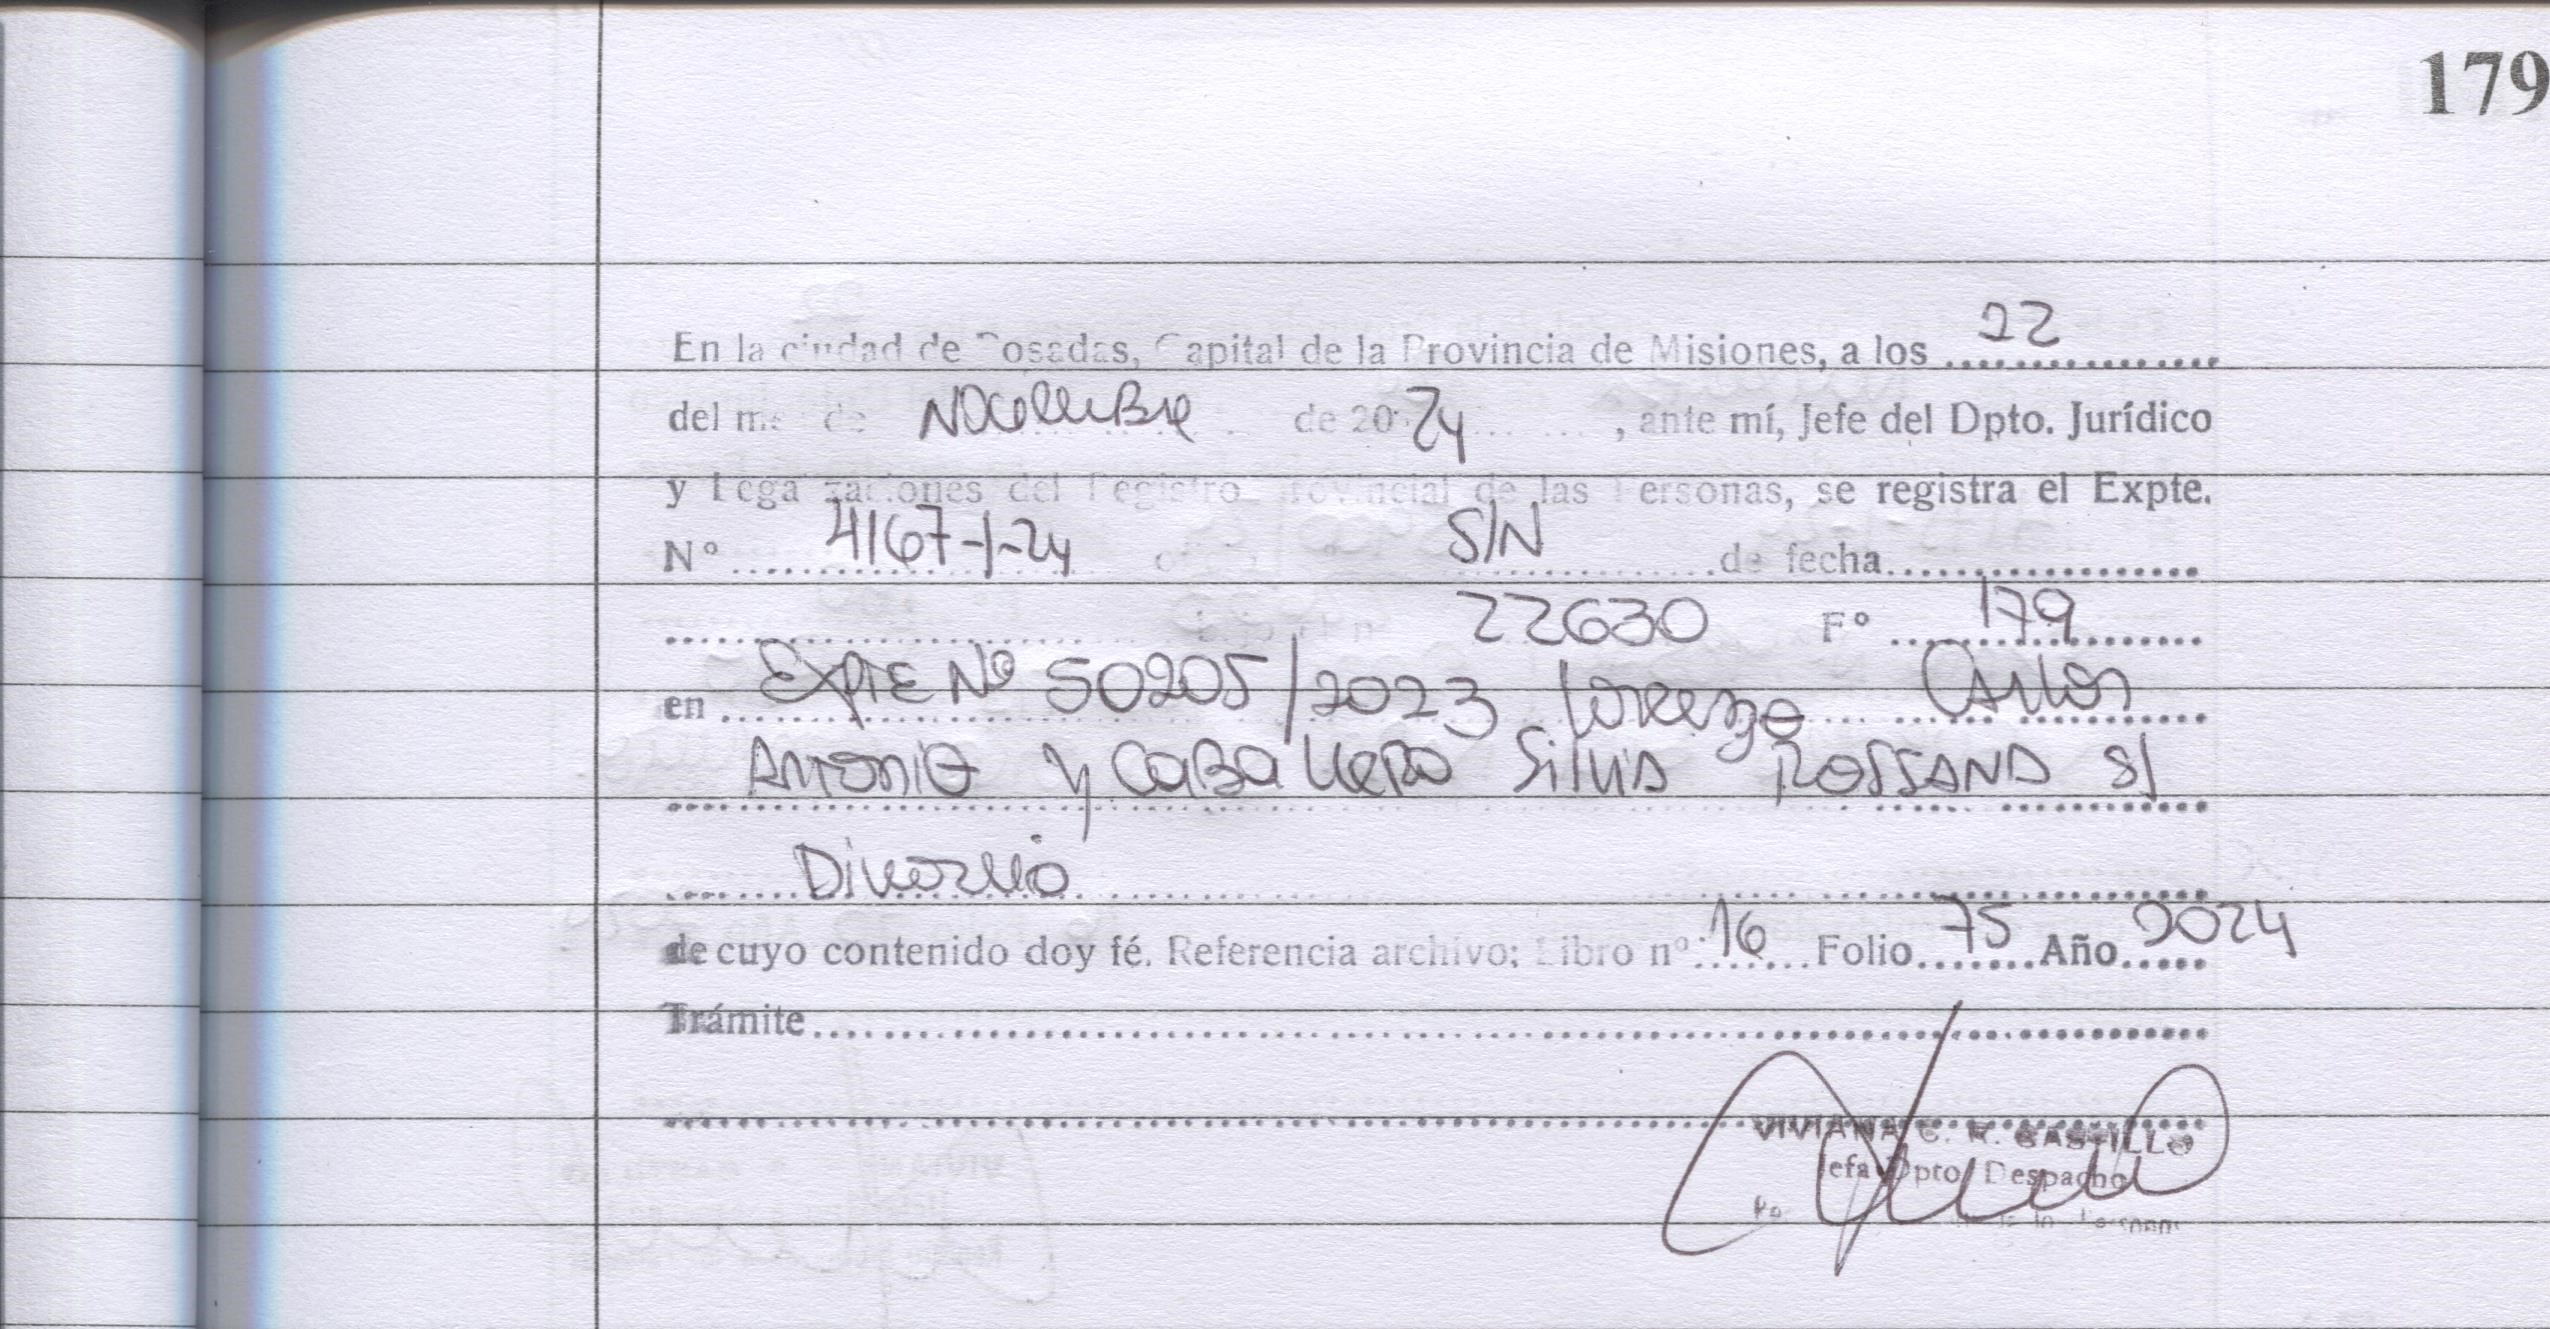 179
En la ciudad de Posadas, Capital de la Provincia de Misiones, a los 22
del mes de Noviembre de 2024, ante mí, Jefe del Dpto. Jurídico
y Legalizaciones del Registro Provincial de las Personas, se registra el Expte.
Nº 4167-J-24 S/N de fecha
22630 Fº 179
en Expte Nº 50205/2023 Lorenzo Carlos
Antonio y Caballero Silvia Rossana S/
Divorcio
de cuyo contenido doy fé. Referencia archivo: Libro nº 16 Folio 75 Año 2024
Trámite
VIVIANA C. R. CASTILLO
Jefa Dpto Despacho